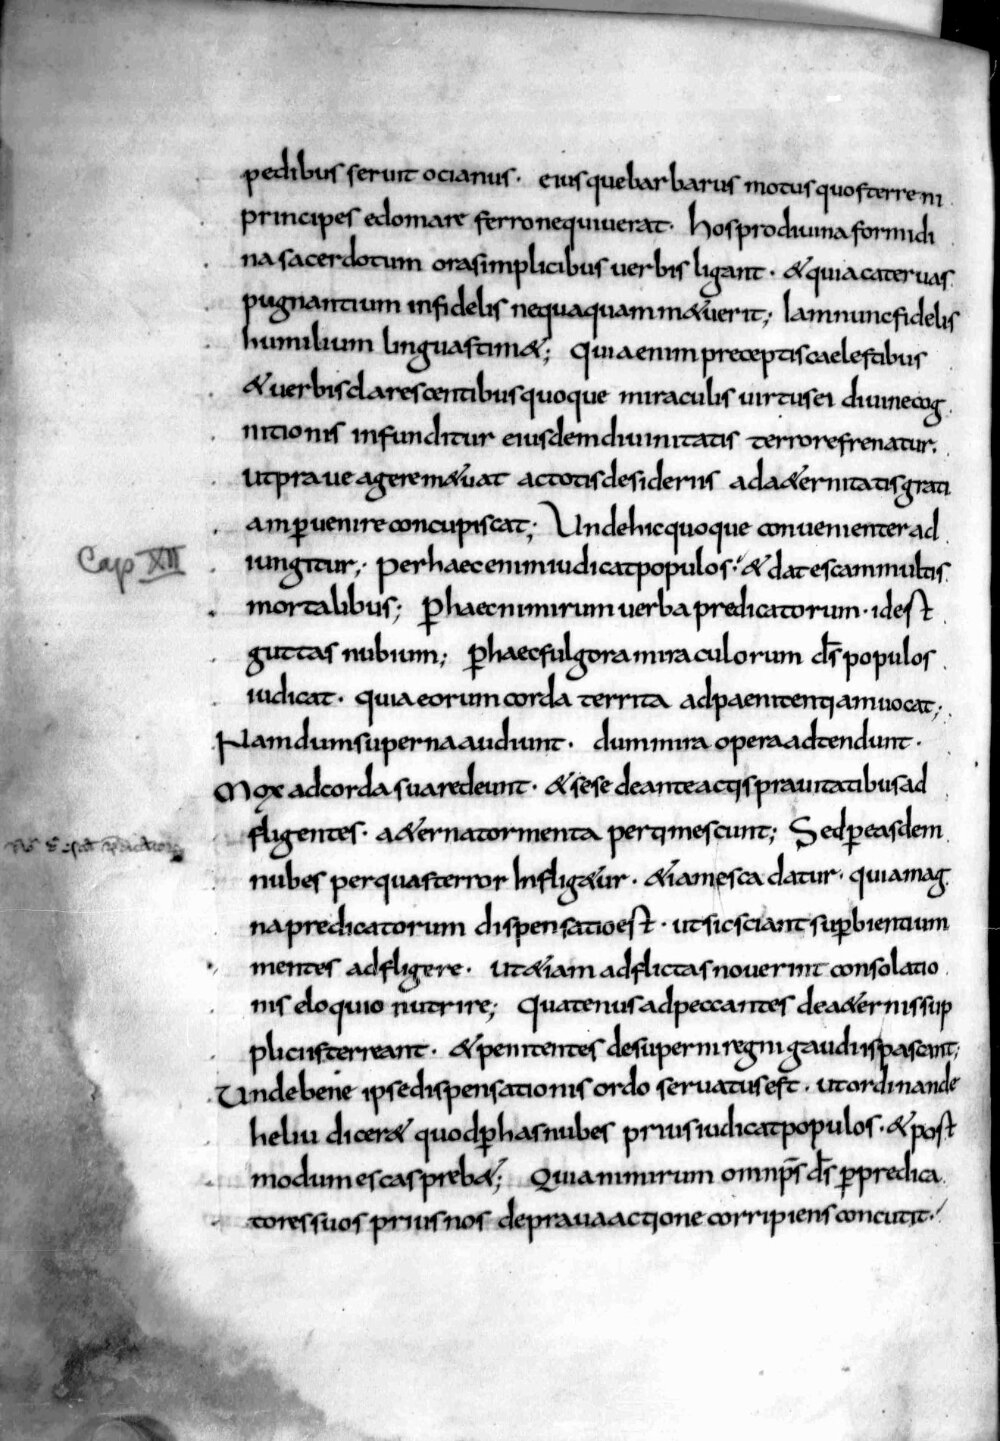 pedibus seruit ocianus · eiusque barbarus motus quos terreni
principes edomare ferro nequiuerat · hos pro diuina formidi
na sacerdotum ora simplicibus uerbis ligant · & qui acateruas
pugnantium infidelis nequaquam m&uerit ; Iam nunc fidelis
humilium linguas tim& ; Quia enim preceptis caelestibus
& uerbis clarescentibus quoque miraculis uirtus ei diuine cog
nitionis infunditur eiusdem diuinitatis terrore frenatur ·
ut praue agere m&uat ac totis desideriis ad a&ernitatis grati
am ꝑuenire concupiscat ; Unde hic quoque conuenienter ad
Cap XII
iungitur ; Per haec enim iudicat populos · & dat escam multis
mortalibus ; ꝑ haec nimirum uerba predicatorum · id est
guttas nubium ; ꝑ haec fulgora miraculorum d̄s populos
iudicat · quia eorum corda territa ad paenitentiam uocat ;
Nam dum superna audiunt · dum mira opera adtendunt ·
Mox ad corda sua redeunt · & sese de anteactis prauitatibus ad
fligentes · a&erna tormenta pertimescunt ; Sed ꝑ easdem
nubes per quas terror Inflig&ur · & iam esca datur · quia mag
na predicatorum dispensatio est · ut sic sciant suꝑbientium
mentes adfligere · ut &iam adflictas nouerint consolatio
nis eloquio nutrire ; Quatenus ad peccantes de a&ernis sup
pliciis terreant · & penitentes de superni regni gaudiis pascant ;
Unde bene ipse dispensationis ordo seruatus est · ut ordinande
heliu dicer& quod ꝑ has nubes prius iudicat populos · & post
modum escas preb& ; Quia nimirum omnip̄s d̄s ꝑ predica
tores suos prius nos de praua actione corripiens concutit ·